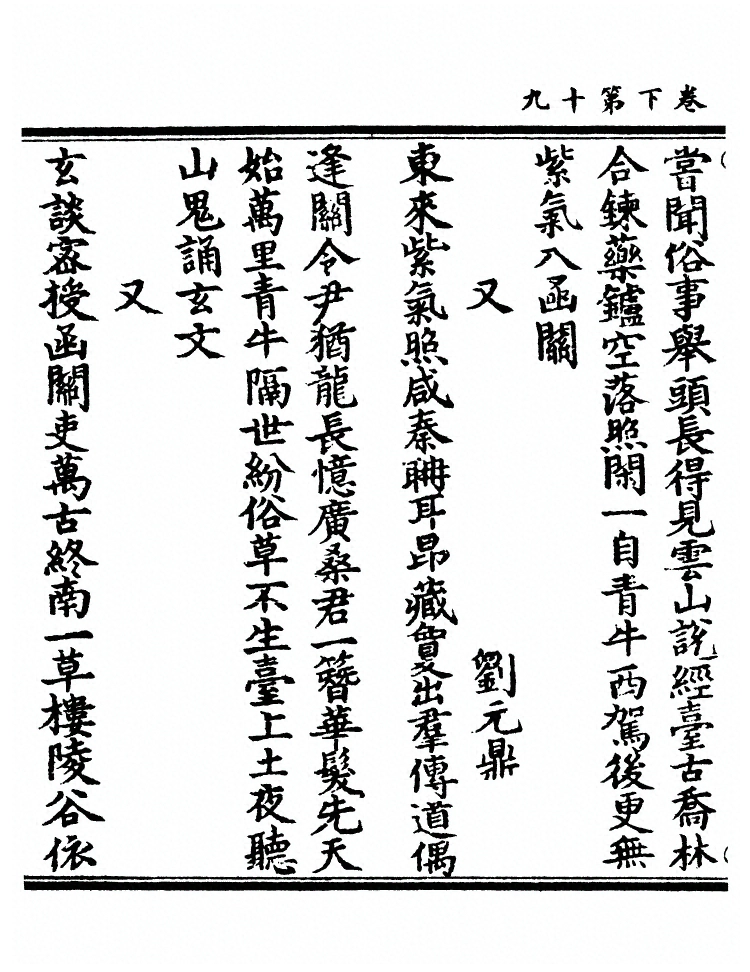 卷下第十九
嘗聞俗事舉頭長得見雲山說經臺古喬林
合鍊藥鑪空落照閑一自青牛西駕後更無
紫氣入函關
又
劉元鼎
東來紫氣照咸秦耼耳昂藏敻出羣傳道偶
逢關令尹猶龍長憶廣桑君一簪華髮先天
始萬里青牛隔世紛俗草不生臺上土夜聽
山鬼誦玄文
又
玄談密授函關吏萬古終南一草樓陵谷依